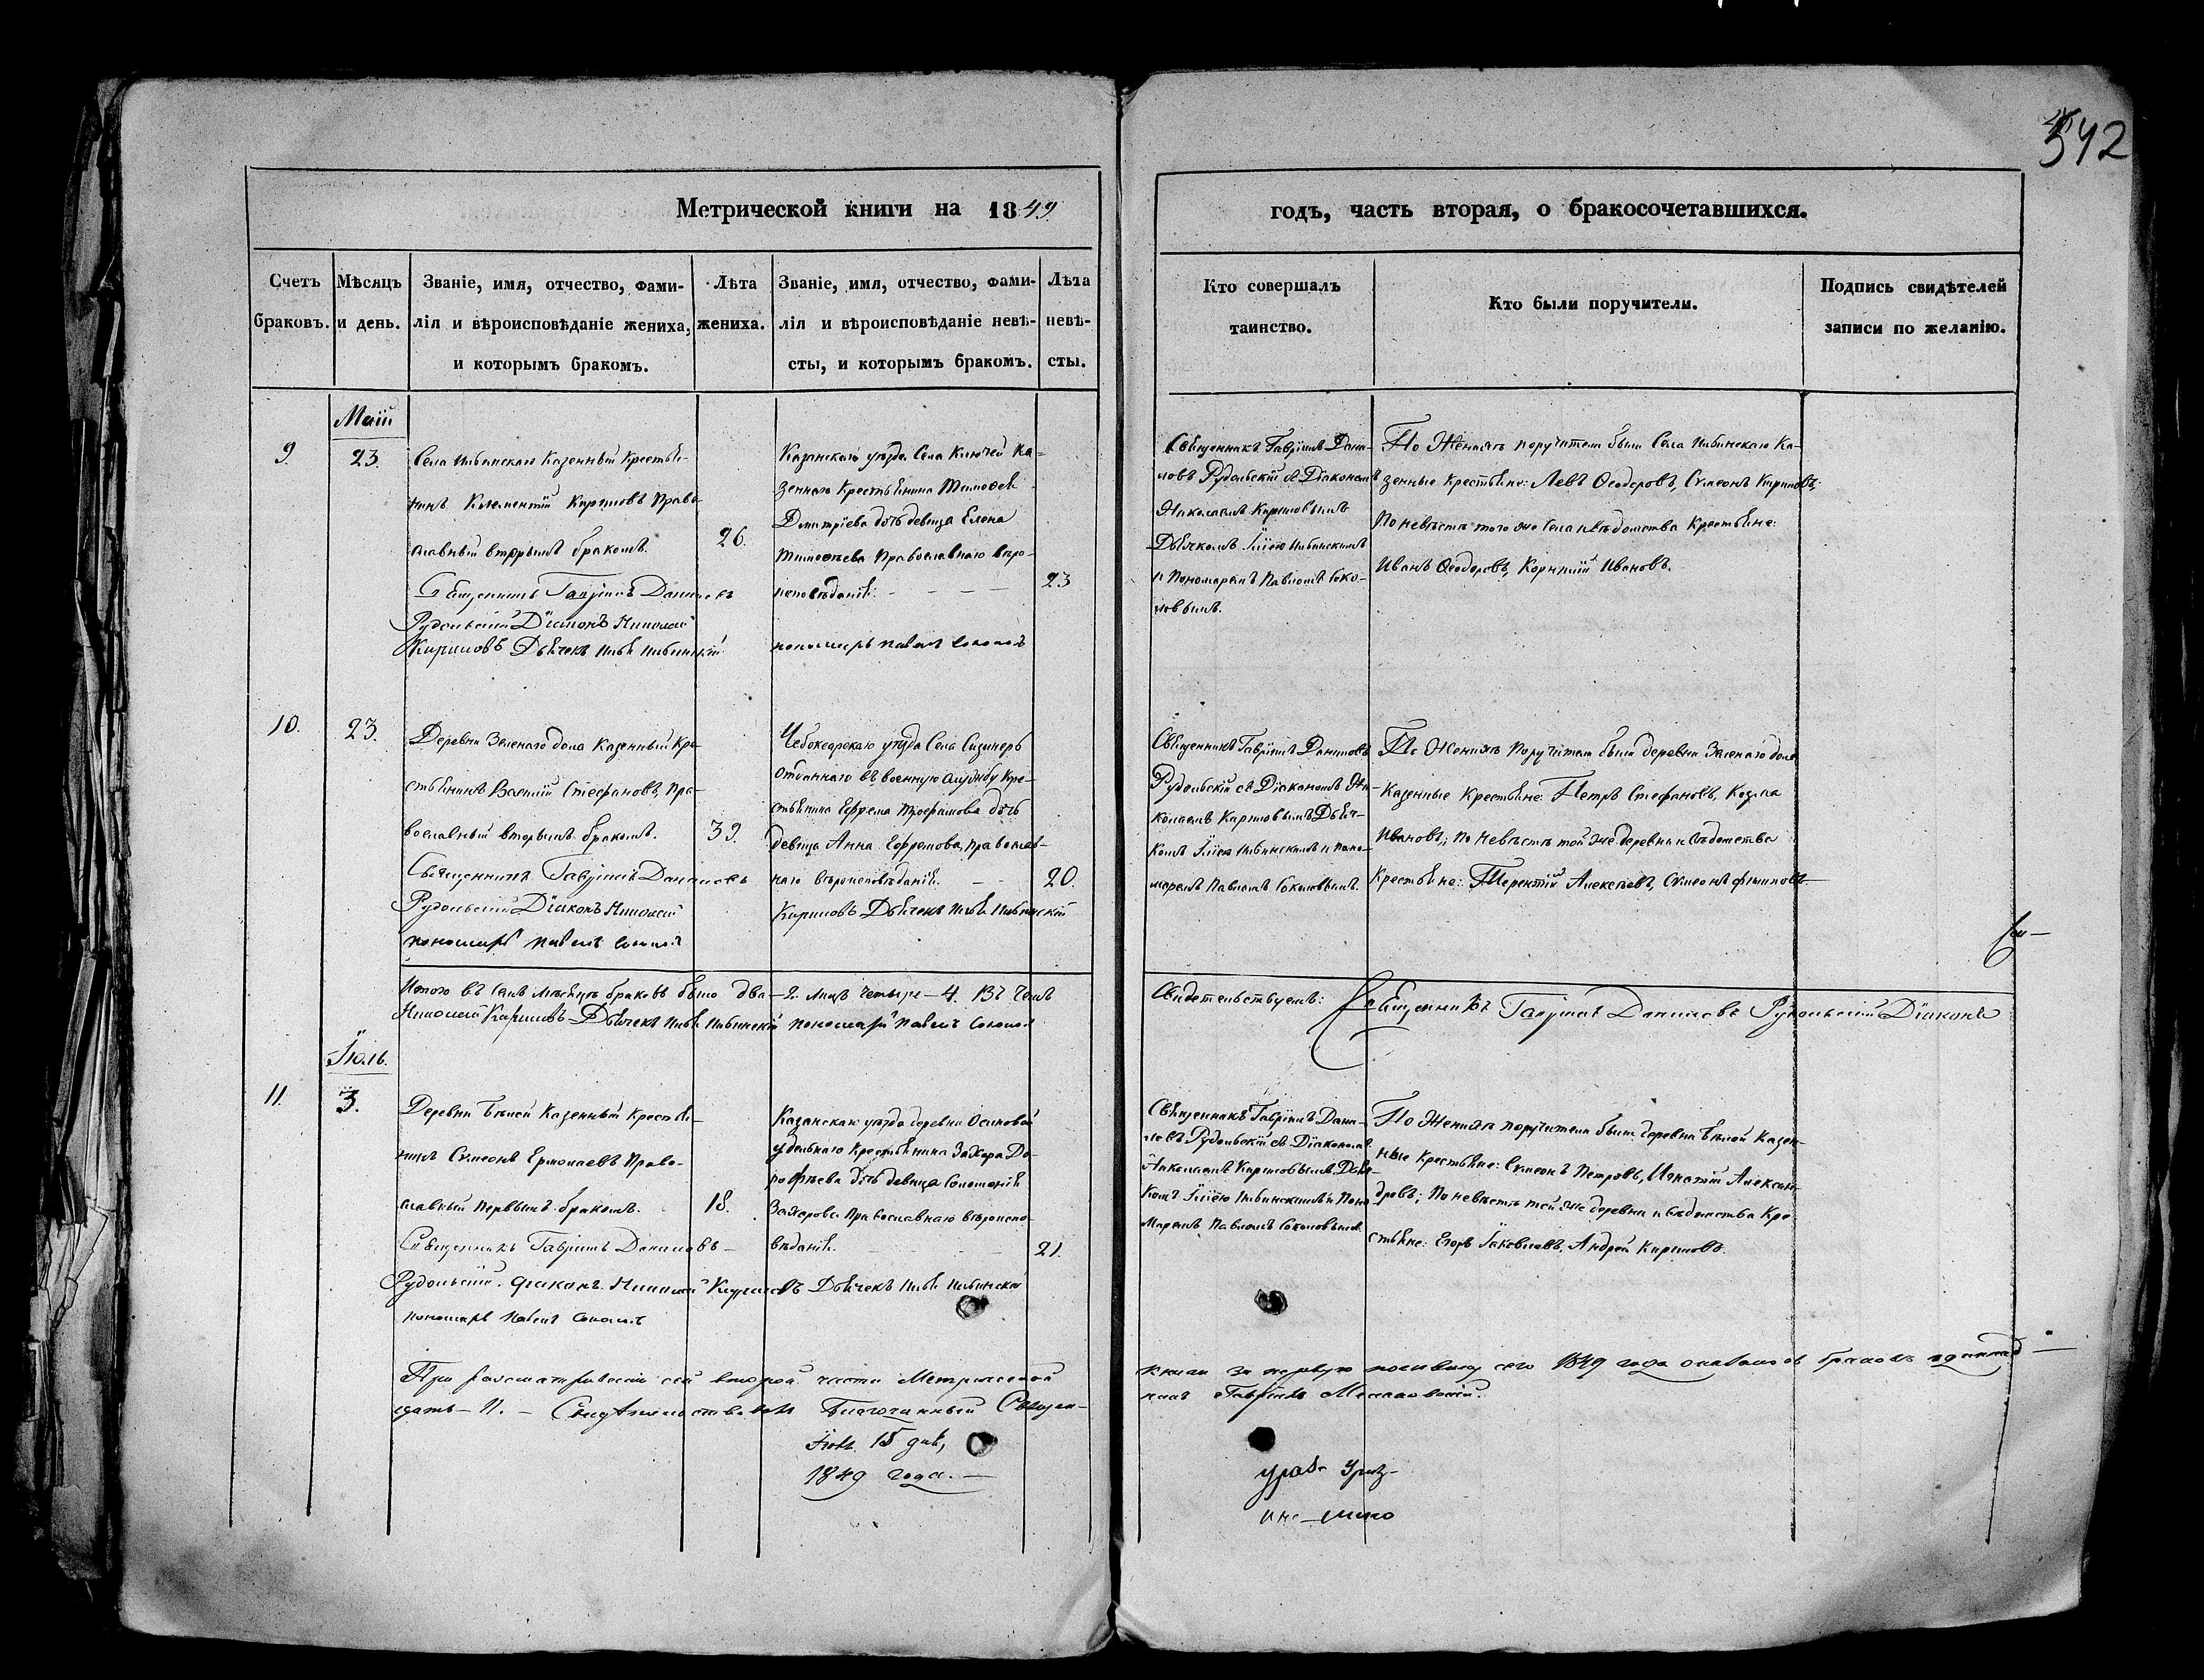 542
Метрической книги на 1849
годъ, часть вторая, о бракосочетавшихся.
Счетъ браковъ.
Мѣсяцъ и день.
Званіе, имя, отчество, фами-
лія и вѣроисповѣданіе жениха,
и которымъ бракомъ.
Лѣта
жениха.
Званіе, имя, отчество, фами-
лія и вѣроисповѣданіе невѣ-
сты, и которымъ бракомъ.
Лѣта
невѣ-
сты.
Кто совершалъ
таинство.
Кто были поручители.
Подпись свидѣтелей
записи по желанію.
Маій
9.
23.
Села Ильинскаго Казенный Крестья-
нинъ Климентій Кириловъ Право-
славный вторымъ бракомъ.
26.
Священникъ Гавріилъ Даниловъ
Рудольскій Діаконъ Николай
Кириловъ Дьячекъ Илья Ильинскій
Казанскаго уѣзда Села Ключей Ка-
зеннаго Крестьянина Тимоѳея
Димитріева дочь девица Елена
Тимоѳеева Православнаго вѣро-
исповѣданія.
23
пономарь Павелъ Соколовъ
Священникъ Гавріилъ Дани-
ловъ Рудольскій съ Діакономъ
Николаемъ Кириловымъ
Дьячкомъ Иліею Ильинскимъ
и Пономаремъ Павломъ Соко-
ловымъ.
По Женихѣ поручители были Села Ильинскаго Ка-
зенные Крестьяне: Левъ Ѳеодоровъ, Сумеонъ Кириловъ;
По невѣстѣ того же Села и вѣдомства Крестьяне:
Иванъ Ѳеодоровъ, Корнилій Ивановъ.
10.
23.
Деревни Зеленаго дола Казенный Кре-
стьянинъ Василій Стефановъ, Пра-
вославный вторымъ бракомъ.
39.
Священникъ Гавріилъ Даниловъ
Рудольскій Діаконъ Николай
пономарь Павелъ Соколовъ
Чебоксарскаго уѣзда Села
отданнаго въ военную службу Кре-
стьянина Ефрема Трофимова дочь
девица Анна Ефремова, православ-
наго вѣроисповѣданія.
20.
Кириловъ Дьячекъ Илья Ильинскій
Священникъ Гавріилъ Даниловъ
Рудольскій съ Діакономъ Ни-
колаемъ Кириловымъ Дьяч-
комъ Иліею Ильинскимъ и Поно-
маремъ Павломъ Соколовымъ.
По Женихѣ Поручители были деревни Зеленаго дола
Казенные Крестьяне: Петръ Стефановъ, Козма
Ивановъ; по Невѣстѣ той же деревни и вѣдомства
Крестьяне: Терентій Алексѣевъ, Сумеонъ Филиповъ.
Итого въ Маѣ мѣсяцѣ браковъ было два—2. лицъ четыре—4. Въ чемъ
Николай Кириловъ Дьячекъ Илья Ильинскій пономарь Павелъ Соколовъ
Свидетельствуемъ: Священникъ Гавріилъ Даниловъ Рудольскій Діаконъ
Іюль.
11.
3.
Деревни Бѣлой Казенный Крестья-
нинъ Сумеонъ Ермолаевъ Право-
славный первымъ бракомъ.
18.
Священникъ Гавріилъ Даниловъ
Рудольскій. Діаконъ Николай Кириловъ Дьячекъ Илья Ильинскій
пономарь Павелъ Соколовъ
Казанскаго уѣзда деревни Осиновой
удельнаго Крестьянина Захара До-
рофѣева дочь девица Соломонія
Захарова Православнаго вѣроиспо-
вѣданія.
21.
Священникъ Гавріилъ Дани-
ловъ Рудольскій съ Діакономъ
Николаемъ Кириловымъ Дьяч-
комъ Иліею Ильинскимъ и Поно-
маремъ Павломъ Соколовымъ.
По Женихѣ поручители были деревни Бѣлой Казен-
ные Крестьяне: Сумеонъ Петровъ, Игнатій Алексан-
дровъ; По невѣстѣ той же деревни и вѣдомства Кре-
стьяне: Егоръ Іаковлевъ, Андрей Кириловъ.
При разсматриваніи сей второй части Метрической
книги за первую половину сего 1849 года оказалось браковъ одиннад-
цать—11.— Свидѣтельствовалъ Благочинный Священ-
никъ Гавріилъ
Іюля 15 дня,
1849 года.